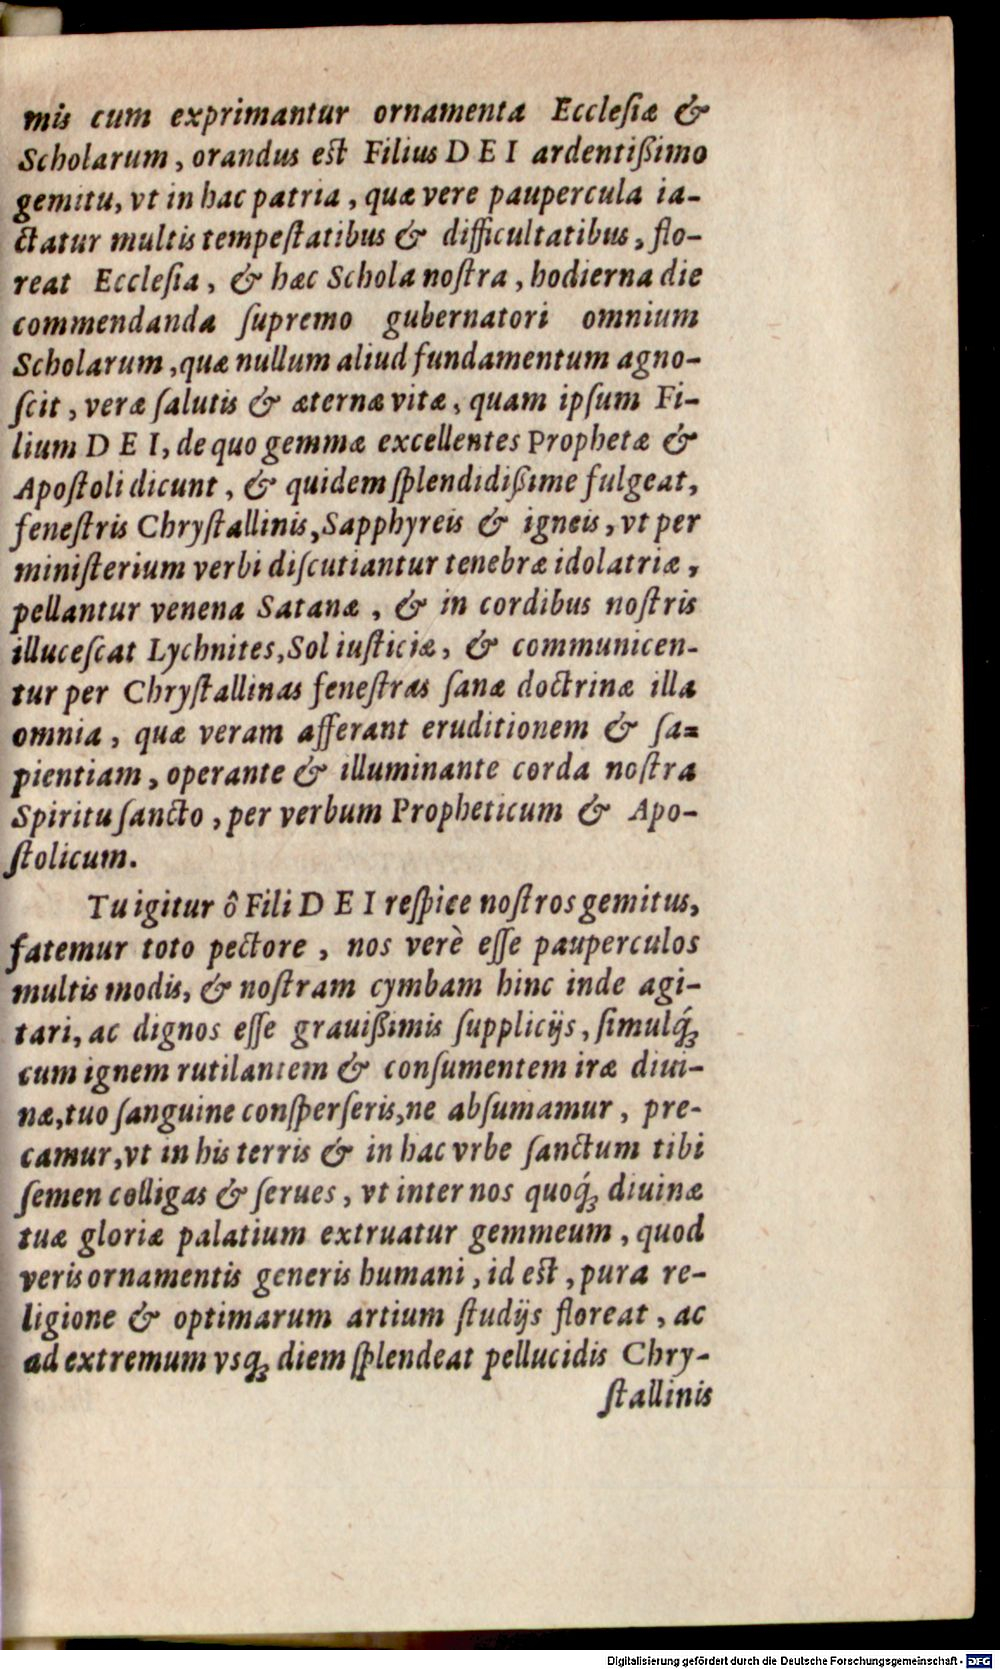 mis cum exprimantur ornamenta Ecclesiæ &
Scholarum, orandus est Filius D E I ardentißimo
gemitu, vt in hac patria, quæ vere paupercula ia-
ctatur multis tempeſtatibus & difficultatibus, flo-
reat Ecclesia, & hæc Schola noſtra, hodierna die
commendanda ſupremo gubernatori omnium
Scholarum, quæ nullum aliud fundamentum agno-
ſcit, veræ ſalutis & æternæ vitæ, quam ipſum Fi-
lium D E I, de quo gemmæ excellentes Prophetæ &
Apoſtoli dicunt, & quidem ſplendidißime fulgeat,
feneſtris Chryſtallinis, Sapphyreis & igneis, vt per
miniſterium verbi diſcutiantur tenebræ idolatriæ,
pellantur venena Satanæ, & in cordibus noſtris
illuceſcat Lychnites, Sol iuſticiæ, & communicen-
tur per Chryſtallinas feneſtras ſanæ doctrinæ illa
omnia, quæ veram afferant eruditionem & ſa=
pientiam, operante & illuminante corda noſtra
Spiritu ſancto, per verbum Propheticum & Apo-
ſtolicum.
Tu igitur ô Fili D E I reſpice noſtros gemitus,
fatemur toto pectore, nos verè eſſe pauperculos
multis modis, & noſtram cymbam hinc inde agi-
tari, ac dignos eſſe grauißimis ſupplicijs, ſimulq́;
cum ignem rutilantem & conſumentem iræ diui-
næ, tuo ſanguine conſperſeris, ne abſumamur, pre-
camur, vt in his terris & in hac vrbe ſanctum tibi
ſemen colligas & ſerues, vt inter nos quoq́; diuinæ
tuæ gloriæ palatium extruatur gemmeum, quod
veris ornamentis generis humani, id est, pura re-
ligione & optimarum artium ſtudijs floreat, ac
ad extremum vsq; diem ſplendeat pellucidis Chry-
ſtallinis
Digitalisierung gefördert durch die Deutsche Forschungsgemeinschaft - DFG